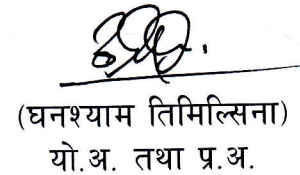 (घनश्याम तिमिल्सिना)
यो.अ. तथा प्र.अ.